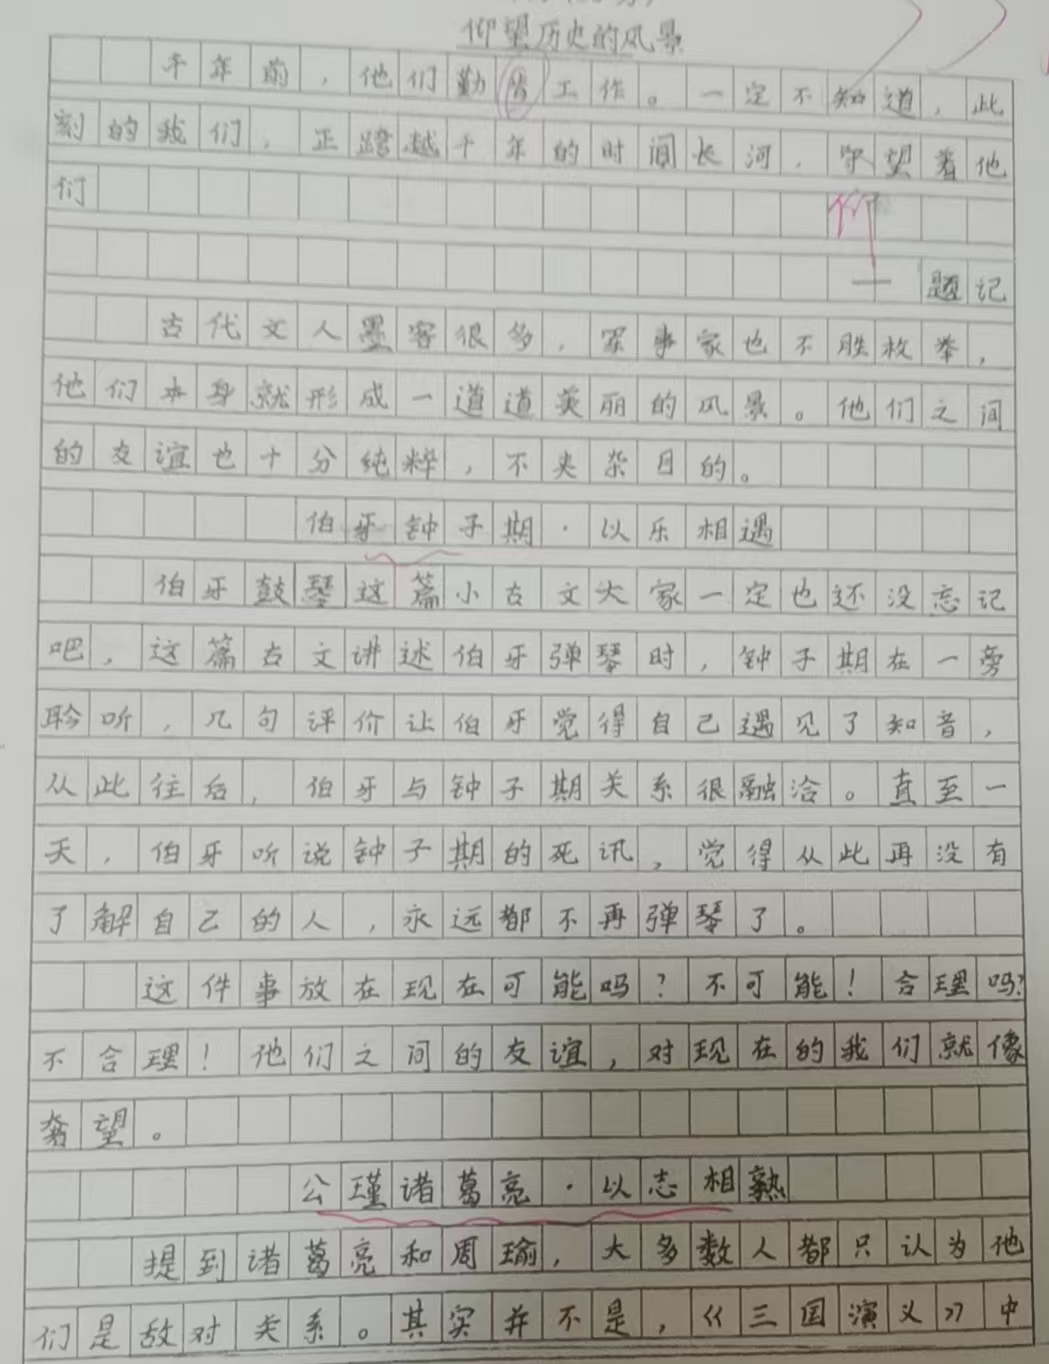 仰望历史的风景
千年前，他们勤劳工作。一定不知道，此
刻的我们，正跨越千年的时间长河，守望着他
们
仰
一题记
古代文人墨客很多，军事家也不胜枚举，
他们本身就形成一道道美丽的风景。他们之间
的友谊也十分纯粹，不夹杂目的。
伯牙钟子期·以乐相遇
伯牙鼓琴这篇小古文大家一定也还没忘记
吧，这篇古文讲述伯牙弹琴时，钟子期在一旁
聆听，几句评价让伯牙觉得自己遇见了知音，
从此往后，伯牙与钟子期关系很融洽。直至一
天，伯牙听说钟子期的死讯，觉得从此再没有
了解自己的人，永远都不再弹琴了。
这件事放在现在可能吗？不可能！合理吗？
不合理！他们之间的友谊，对现在的我们就像
奢望。
公瑾诸葛亮·以志相熟
提到诸葛亮和周瑜，大多数人都只认为他
们是敌对关系。其实并不是，《三国演义》中